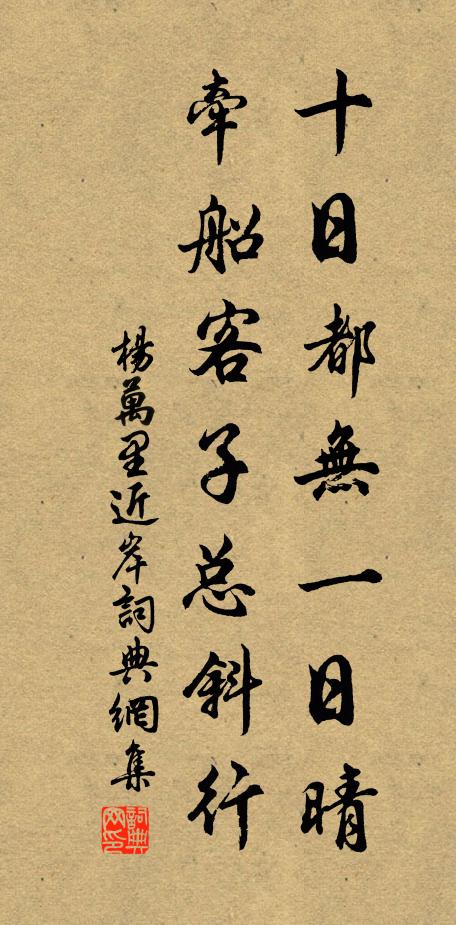 十日都無一日晴
牽船客子总斜行
楊萬里近岸詞典網集
詞典網印